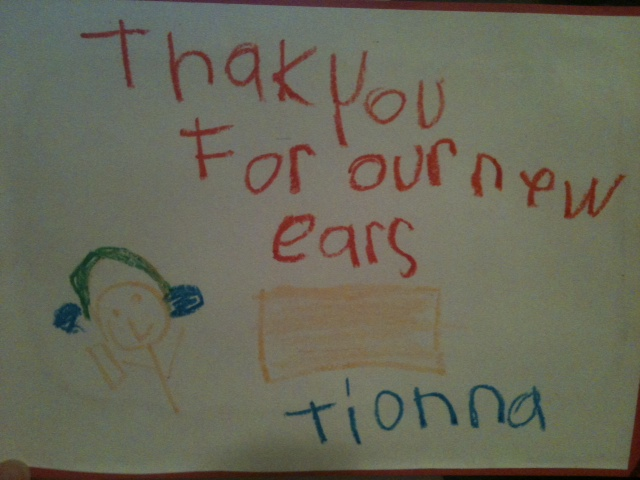 Thak you
For our new
ears
Tionna